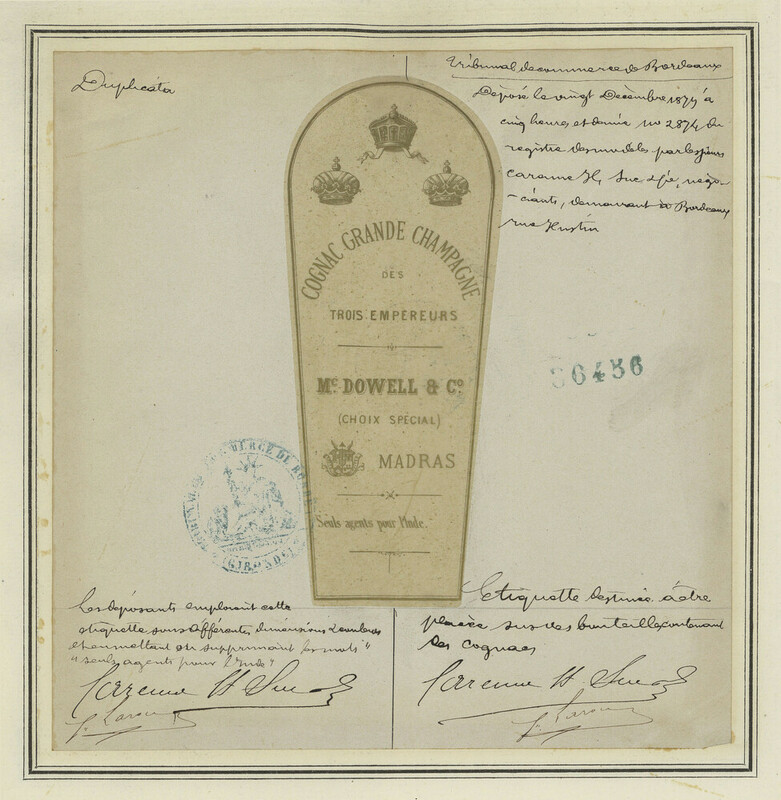 Duplicata
Tribunal de commerce de Bordeaux
Déposé le vingt Décembre 1874 à
cinq heures et demie no 2874 du
registre des modeles par les sieurs
négo-
-ciants, demeurant à Bordeaux
rue Hustin
COGNAC GRANDE CHAMPAGNE
DES
TROIS EMPEREURS
Mc. DOWELL & Co.
(CHOIX SPÉCIAL)
MADRAS
Seuls agents pour l'Inde.
36456
GIRONDE
Les déposants emploient cette
etiquette sous différentes dimensions & couleurs
et en mettant ou supprimant les mots "
"seuls agents pour l'Inde"
Etiquette destinée à être
placée sur des bouteilles contenant
des cognacs